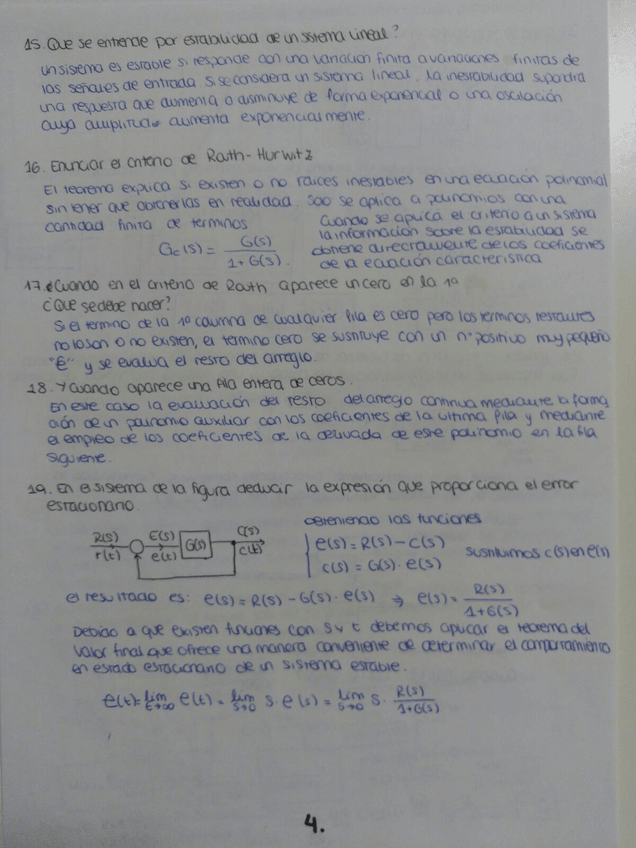 15. Que se entiende por estabilidad de un sistema lineal?
Un sistema es estable si responde con una variación finita a variaciones finitas de
las señales de entrada. Si se considera un sistema lineal, la inestabilidad supondra
una respuesta que aumenta o disminuye de forma exponencial o una oscilación
cuya amplitud aumenta exponencialmente.
16. Enunciar el criterio de Routh-Hurwitz
El teorema explica si existen o no raices inestables en una ecuación polinomial
sin tener que obtenerlas en realidad. Solo se aplica a polinomios con una
cantidad finita de terminos
Gc(s) = G(s) / 1+G(s).
Cuando se aplica el criterio a un sistema
la información sobre la estabilidad se
obtiene directamente de los coeficientes
de la ecuación caracteristica
17. ¿Cuando en el criterio de Routh aparece un cero en la 1ª
¿Que se debe hacer?
Si el termino de la 1ª columna de cualquier fila es cero pero los terminos restantes
no lo son o no existen, el termino cero se sustituye con un nº positivo muy pequeño
"Є" y se evalua el resto del arreglo.
18. Y cuando aparece una fila entera de ceros.
En este caso la evaluación del resto del arreglo continua mediante la forma
ción de un polinomio auxiliar con los coeficientes de la ultima fila y mediante
el empleo de los coeficientes de la derivada de este polinomio en la fila
siguiente.
19. En el sistema de la figura deducir la expresión que proporciona el error
estacionario.
obteniendo las funciones
R(s) r(t) E(s) e(t) G(s) C(s) C(t)
e(s) = R(s) - C(s)
C(s) = G(s) · e(s)
sustituimos C(s) en e(s)
el resultado es: e(s) = R(s) - G(s) · e(s) ⇒ e(s) = R(s) / 1+G(s)
Debido a que existen funciones con s y t debemos aplicar el teorema del
valor final que ofrece una manera conveniente de determinar el comportamiento
en estado estacionario de un sistema estable.
e(t) = lim t→∞ e(t) = lim s→0 s · e(s) = lim s→0 s · R(s) / 1+G(s)
4.